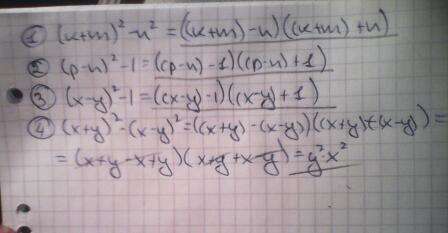 ① (k+m)²-n²=((k+m)-n)((k+m)+n)
② (p-n)²-1=((p-n)-1)((p-n)+1)
③ (x-y)²-1=((x-y)-1)((x-y)+1)
④ (x+y)²-(x-y)²=((x+y)-(x-y))((x+y)+(x-y))=
=(x+y-x+y)(x+y+x-y)=y²·x²